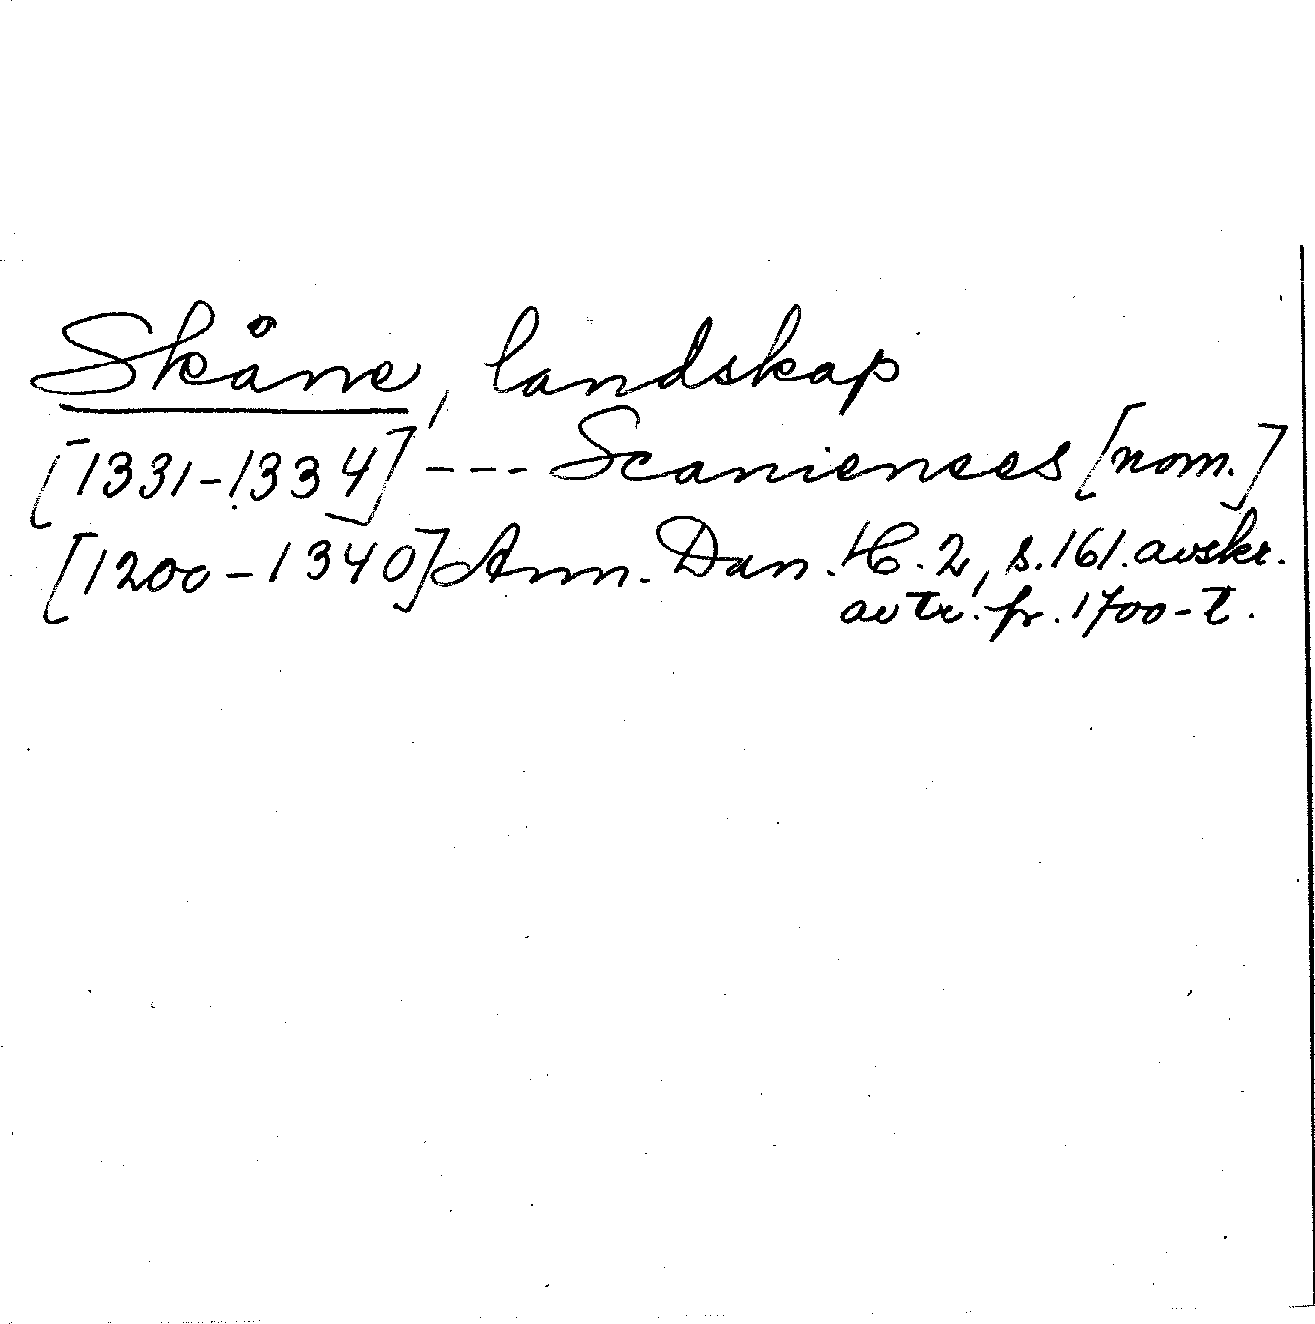 Skåne, landskap
[1331-1334] --- Scaniences [nom.]
[1200-1340] Ann. Dan. H. 2, s. 161. avskr.
av tr. fr. 1700-t.